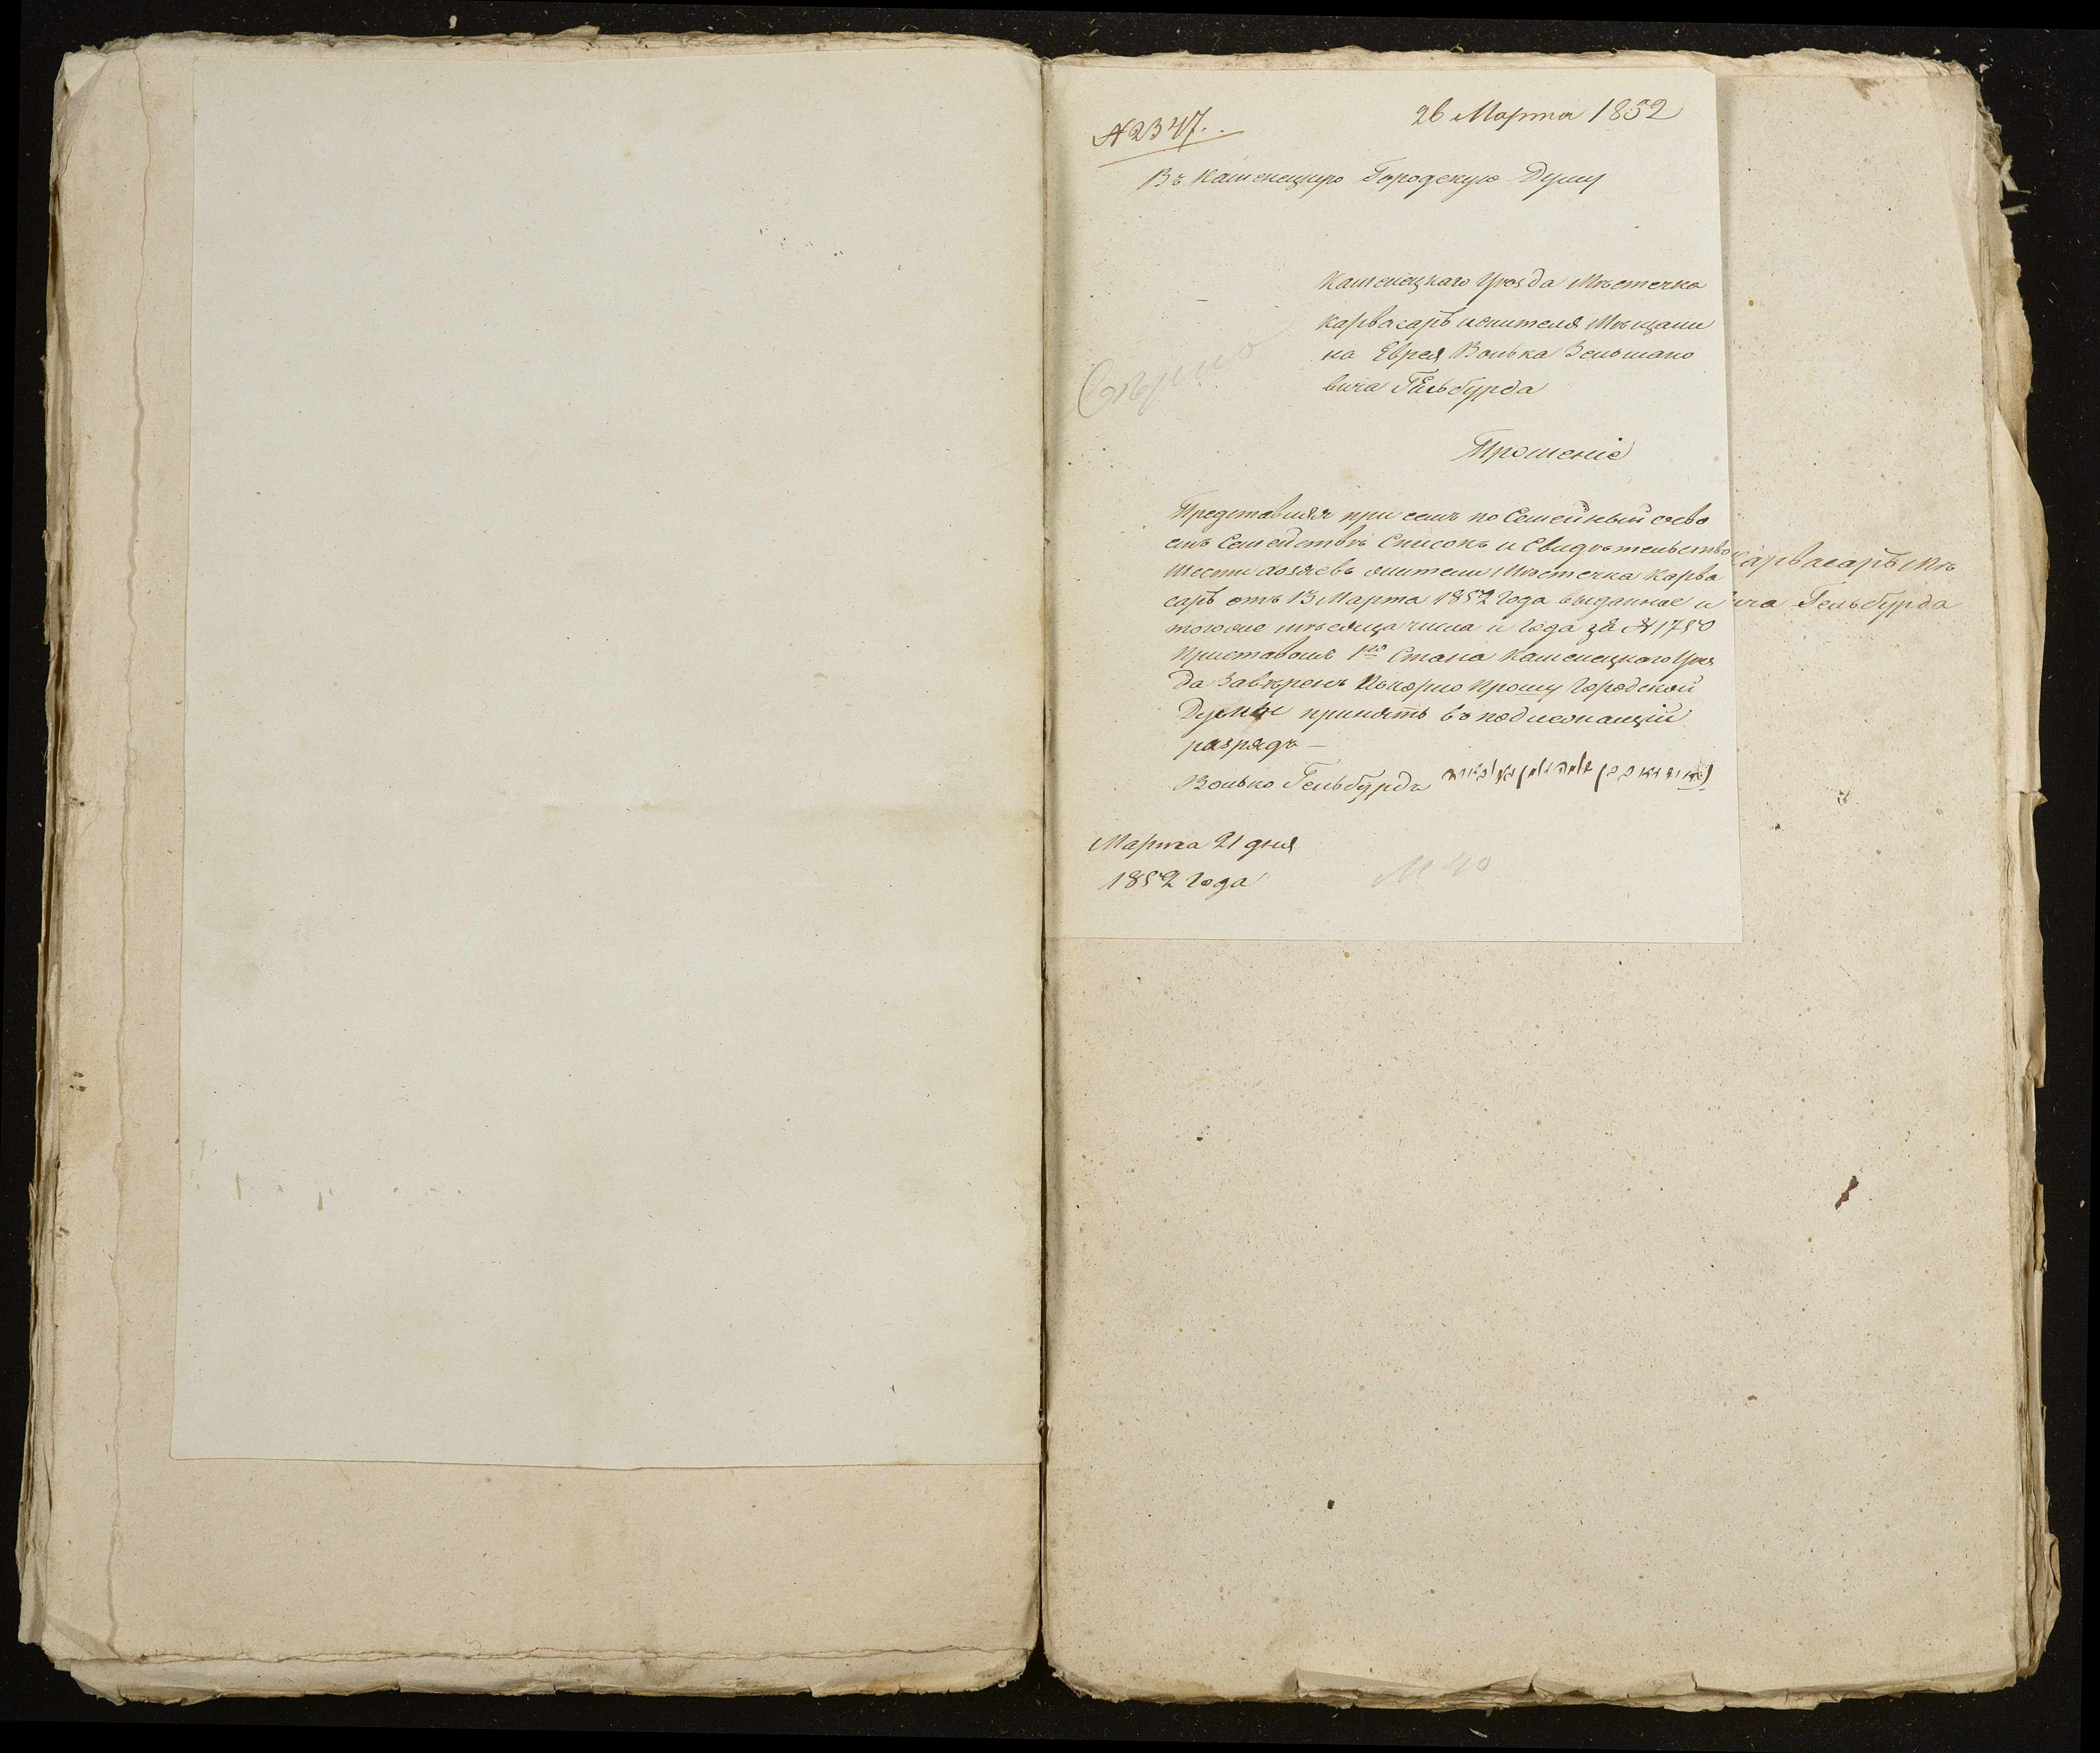 № 2347.
26 Марта 1852
Въ Каменецкую Городскую Думу
Каменецкаго Уѣзда Мѣстечка
Карвасаръ жителя Мѣщани
на Еврея Волька Зельмано
вича Гельбурда
Прошеніе
Представляя при семъ по Семейный о сво
емъ Семействѣ Списокъ и Свидѣтельство
Шести хозяевъ жители Мѣстечка Карва
саръ отъ 13 Марта 1852 Года выданное и
тогоже мѣсяца числа и Года за № 1750
Приставомъ 1го Стана Каменецкаго Уѣз
да Завѣренъ Покорно Прошу Городской
Думы принять въ подлежащій
разрядъ —
Волько Гельбурдъ
Марта 21 дня
1852 Года
№ 40
Карвасаръ Мѣ
ича Гельбурда